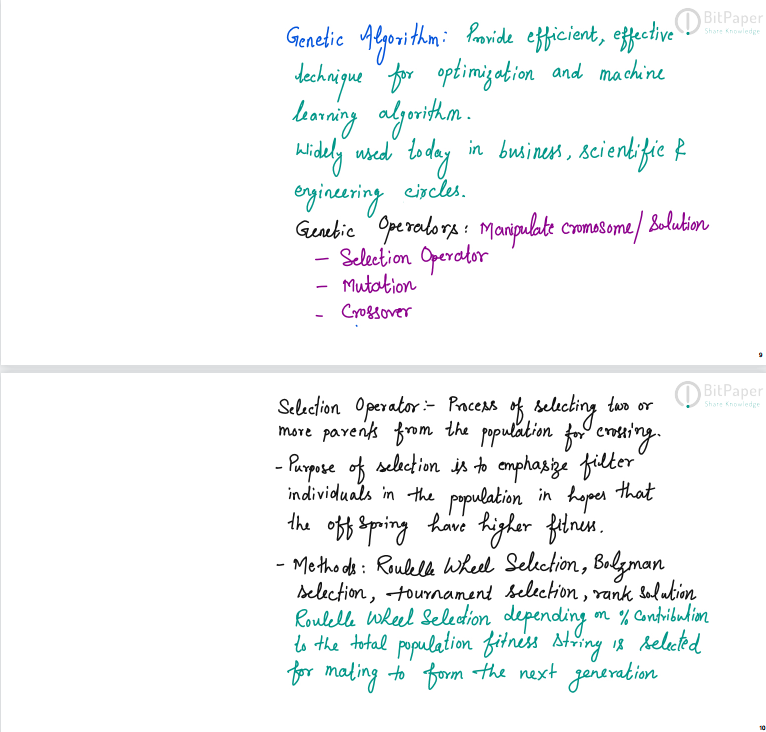 BitPaper
Share Knowledge
Genetic Algorithm: Provide efficient, effective
technique for optimization and machine
learning algorithm.
Widely used today in business, scientific &
engineering circles.
Genetic Operators: Manipulate cromosome/ Solution
– Selection Operator
– Mutation
– Crossover
9
BitPaper
Share Knowledge
Selection Operator:- Process of selecting two or
more parents from the population for crossing.
- Purpose of selection is to emphasize filter
individuals in the population in hopes that
the off spring have higher fitness.
- Methods: Roulelle Wheel Selection, Bolzman
selection, tournament selection, rank solution
Roulelle Wheel Selection depending on % Contribution
to the total population fitness string is selected
for mating to form the next generation
10